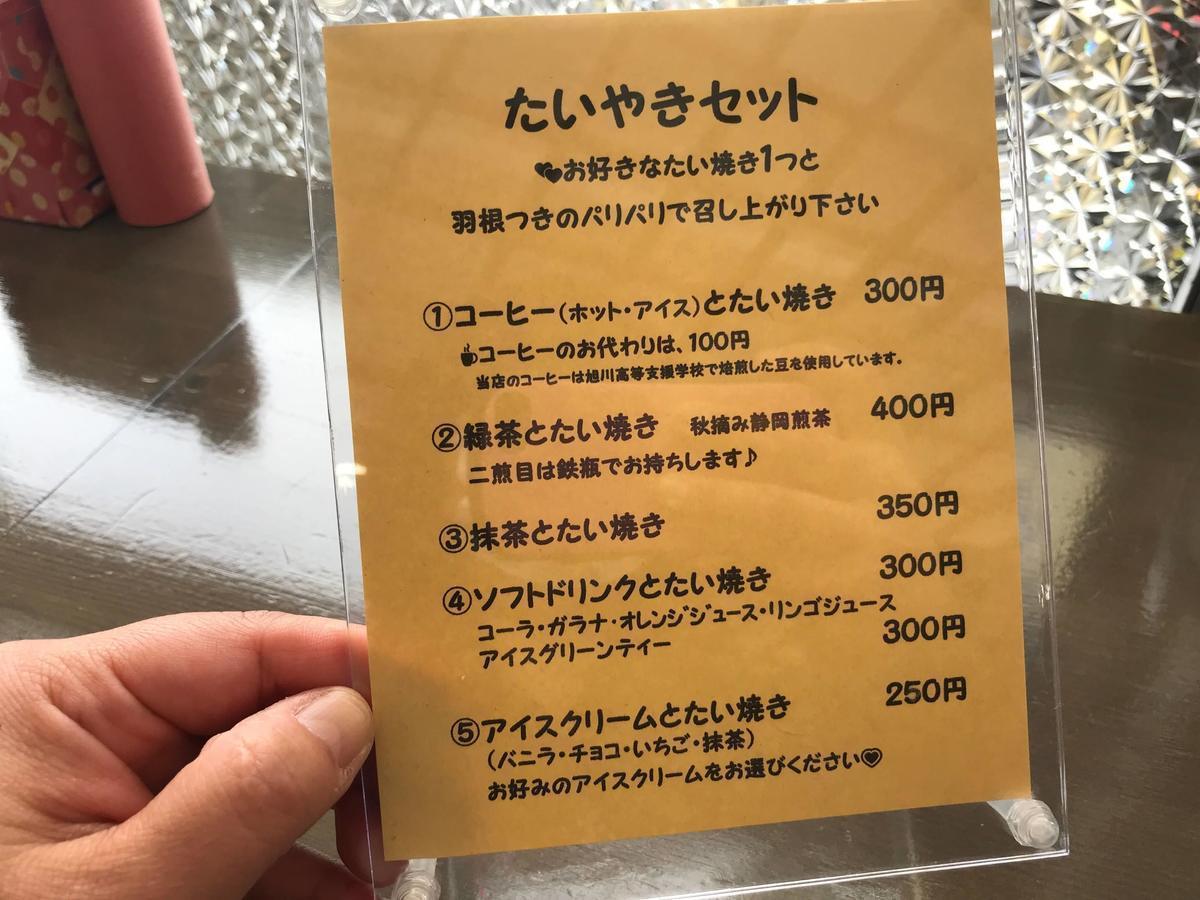 たいやきセット
♥お好きなたい焼き1つと
羽根つきのパリパリで召し上がり下さい
①コーヒー(ホット・アイス)とたい焼き 300円
☕コーヒーのお代わりは、100円
当店のコーヒーは旭川高等支援学校で焙煎した豆を使用しています。
②緑茶とたい焼き 秋摘み静岡煎茶 400円
二煎目は鉄瓶でお持ちします♪
③抹茶とたい焼き 350円
④ソフトドリンクとたい焼き 300円
コーラ・ガラナ・オレンジジュース・リンゴジュース
アイスグリーンティー 300円
⑤アイスクリームとたい焼き 250円
(バニラ・チョコ・いちご・抹茶)
お好みのアイスクリームをお選びください♥